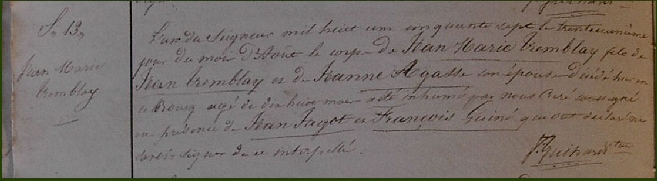 S. 13.
Jean Marie
Tremblay
L'an du Seigneur mil huit cent cinquante sept le trente unième
jour du mois d'Août le corps de Jean Marie Tremblay fils de
Jean Tremblay et de Jeanne Agasse son épouse décédé hier en
ce bourg agé de dix huit mois a été inhumé par nous Curé soussigné
en présence de Jean Jagot et François Guiné qui ont déclaré ne
savoir signer de ce interpellé.
J. Guihard